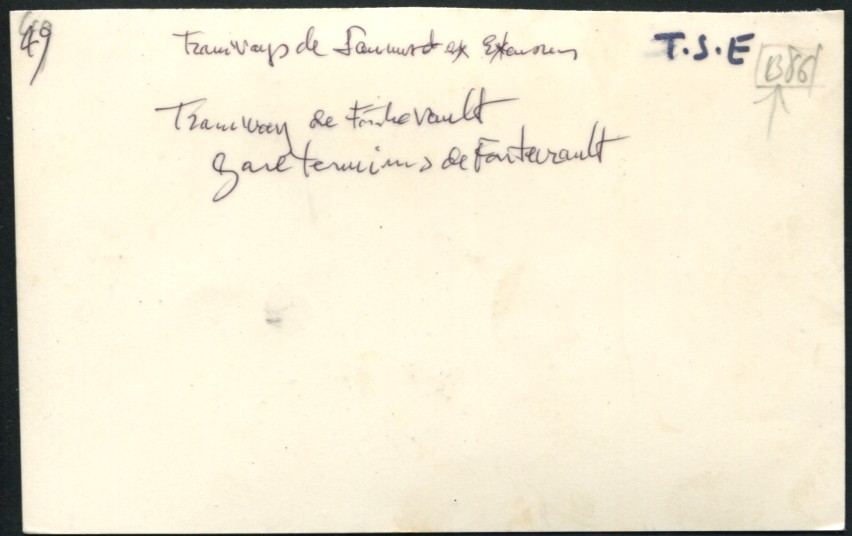 49
Tramways de Saumur et ex Extensions T.S.E B86
Tramway de Fontevrault
Gare terminus de Fontevrault